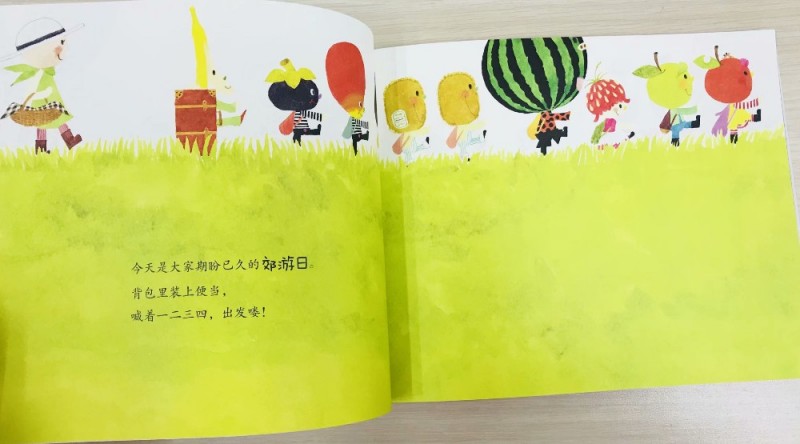 今天是大家期盼已久的郊游日。
背包里装上便当，
喊着一二三四，出发喽！